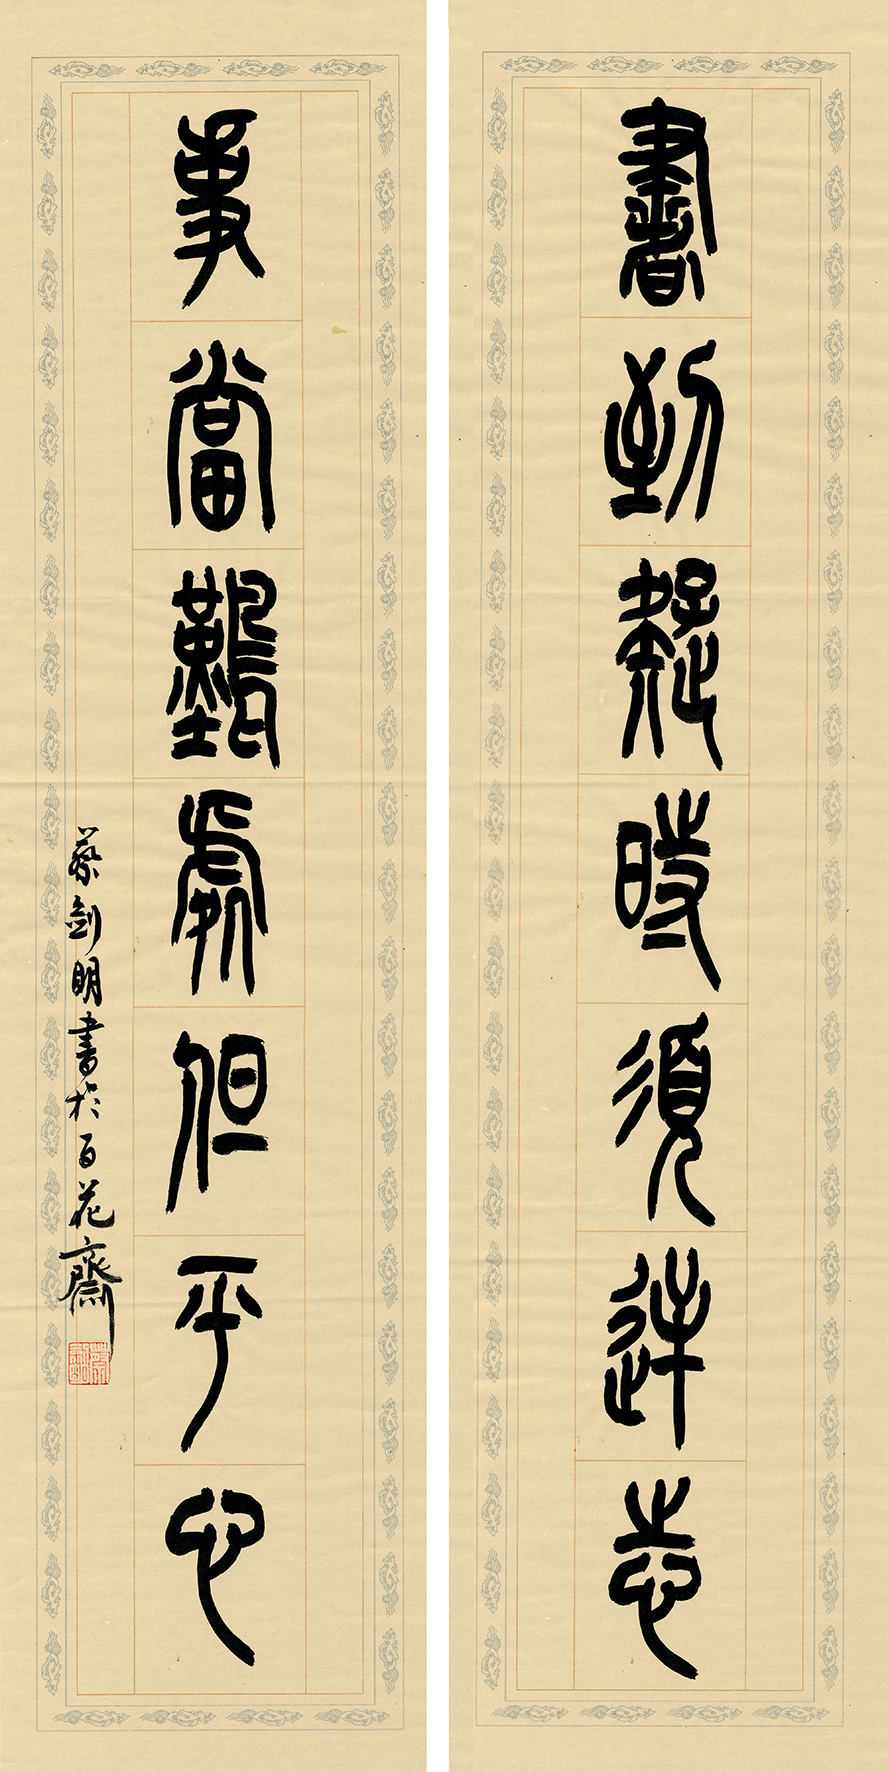 書到疑時須逆志
事當難處但平心
蔡劍明書於百花齋